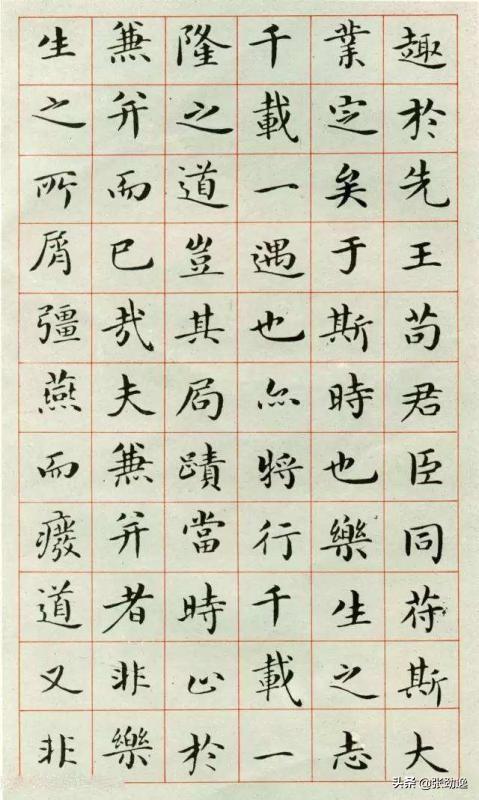 趣於先王苟君臣同苻斯大
業定矣于斯時也樂生之志
千載一遇也亦將行千載一
隆之道豈其局蹟當時止於
兼并而已哉夫兼并者非樂
生之所屑彊燕而癈道又非
头条 @张劲逸